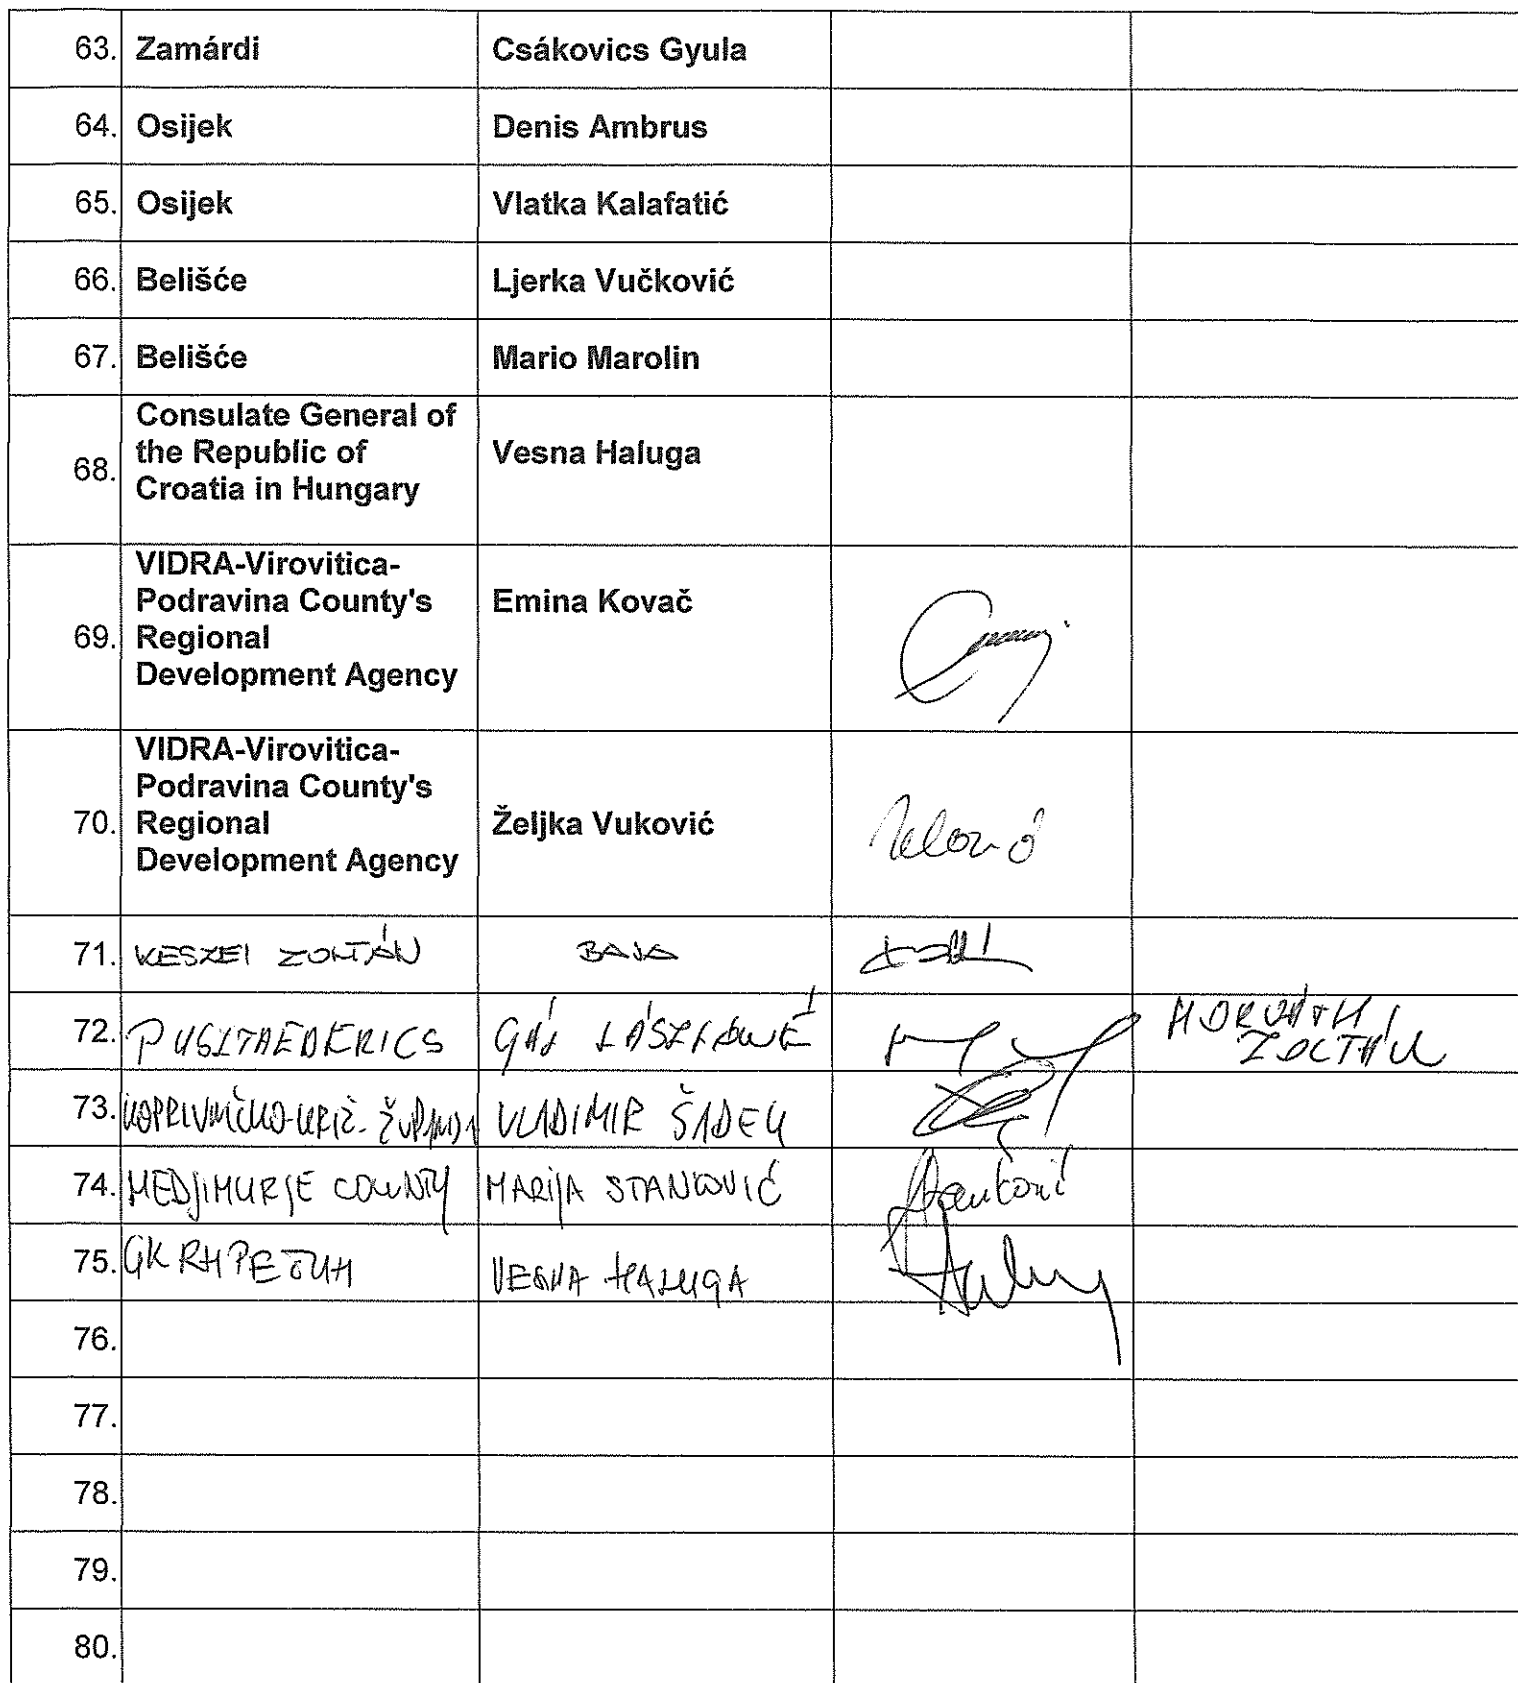 63. Zamárdi Csákovics Gyula
64. Osijek Denis Ambrus
65. Osijek Vlatka Kalafatić
66. Belišće Ljerka Vučković
67. Belišće Mario Marolin
68. Consulate General of
the Republic of
Croatia in Hungary
Vesna Haluga
69. VIDRA-Virovitica-
Podravina County's
Regional
Development Agency
Emina Kovač
70. VIDRA-Virovitica-
Podravina County's
Regional
Development Agency
Željka Vuković
71. KESZEI ZOLTÁN BAJA
72. PUSZTAEDERICS GÁJ LÁSZLÓNÉ HORVÁTH
ZOLTÁN
73. KOPRIVNIČKO-KRIŽ. VLADIMIR ŠADEK
74. MEDJIMURJE COUNTY MARIJA STANKOVIĆ Stanković
75. GK RH PEČUH VESNA HALUGA
76.
77.
78.
79.
80.